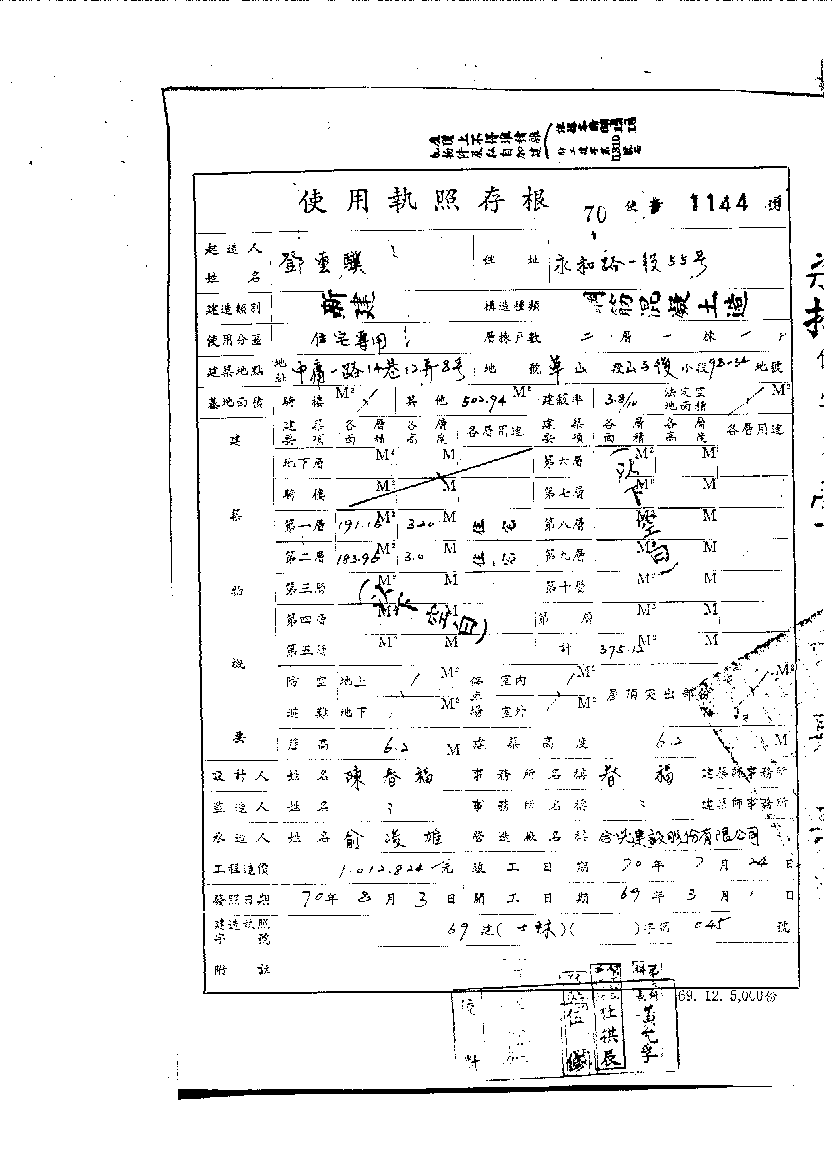 使用執照存根 70 使 1144 號
起造人姓名 鄧雲驥 住址 永和路一段55号
建造類別 新建 構造種類 鋼筋混凝土造
使用分區 住宅專用 層棟戶數 二層一棟一戶
建築地點 地址 中庸一路14巷12弄8号 地號 華山 段 小段98-34地號
基地面積 騎樓 M² 其他 502.94 M² 建蔽率 法定空地面積 M²
建築概要 建築要項 各層面積 各層高度 各層用途 建築要項 各層面積 各層高度 各層用途
地下層 M² M 第六層 M² M
騎樓 M² M 第七層 M² M
第一層 M² 3.20 M 住宅 第八層 M² M
第二層 M² 3.0 M 住宅 第九層 M² M
第三層 M² M 第十層 M² M
(以下空白)
第四層 M² M 第 層 M² M
(以下空白)
第五層 M² M 計 M²
防空避難 地上 M² 停車場 室內 M² 屋頂突出部份 M²
地下 M² 室外 M²
簷高 6.2 M 建築高度 6.2 M
設計人 姓名 陳春福 事務所名稱 春福 建築師事務所
監造人 姓名 事務所名稱 建築師事務所
承造人 姓名 俞浚雄 營造廠名稱 建設股份有限公司
工程造價 1,012,824元 竣工日期 70年7月24日
發照日期 70年8月3日 開工日期 69年3月1日
建造執照字號 69建( )( )字第045號
附註
69. 12. 5,000份